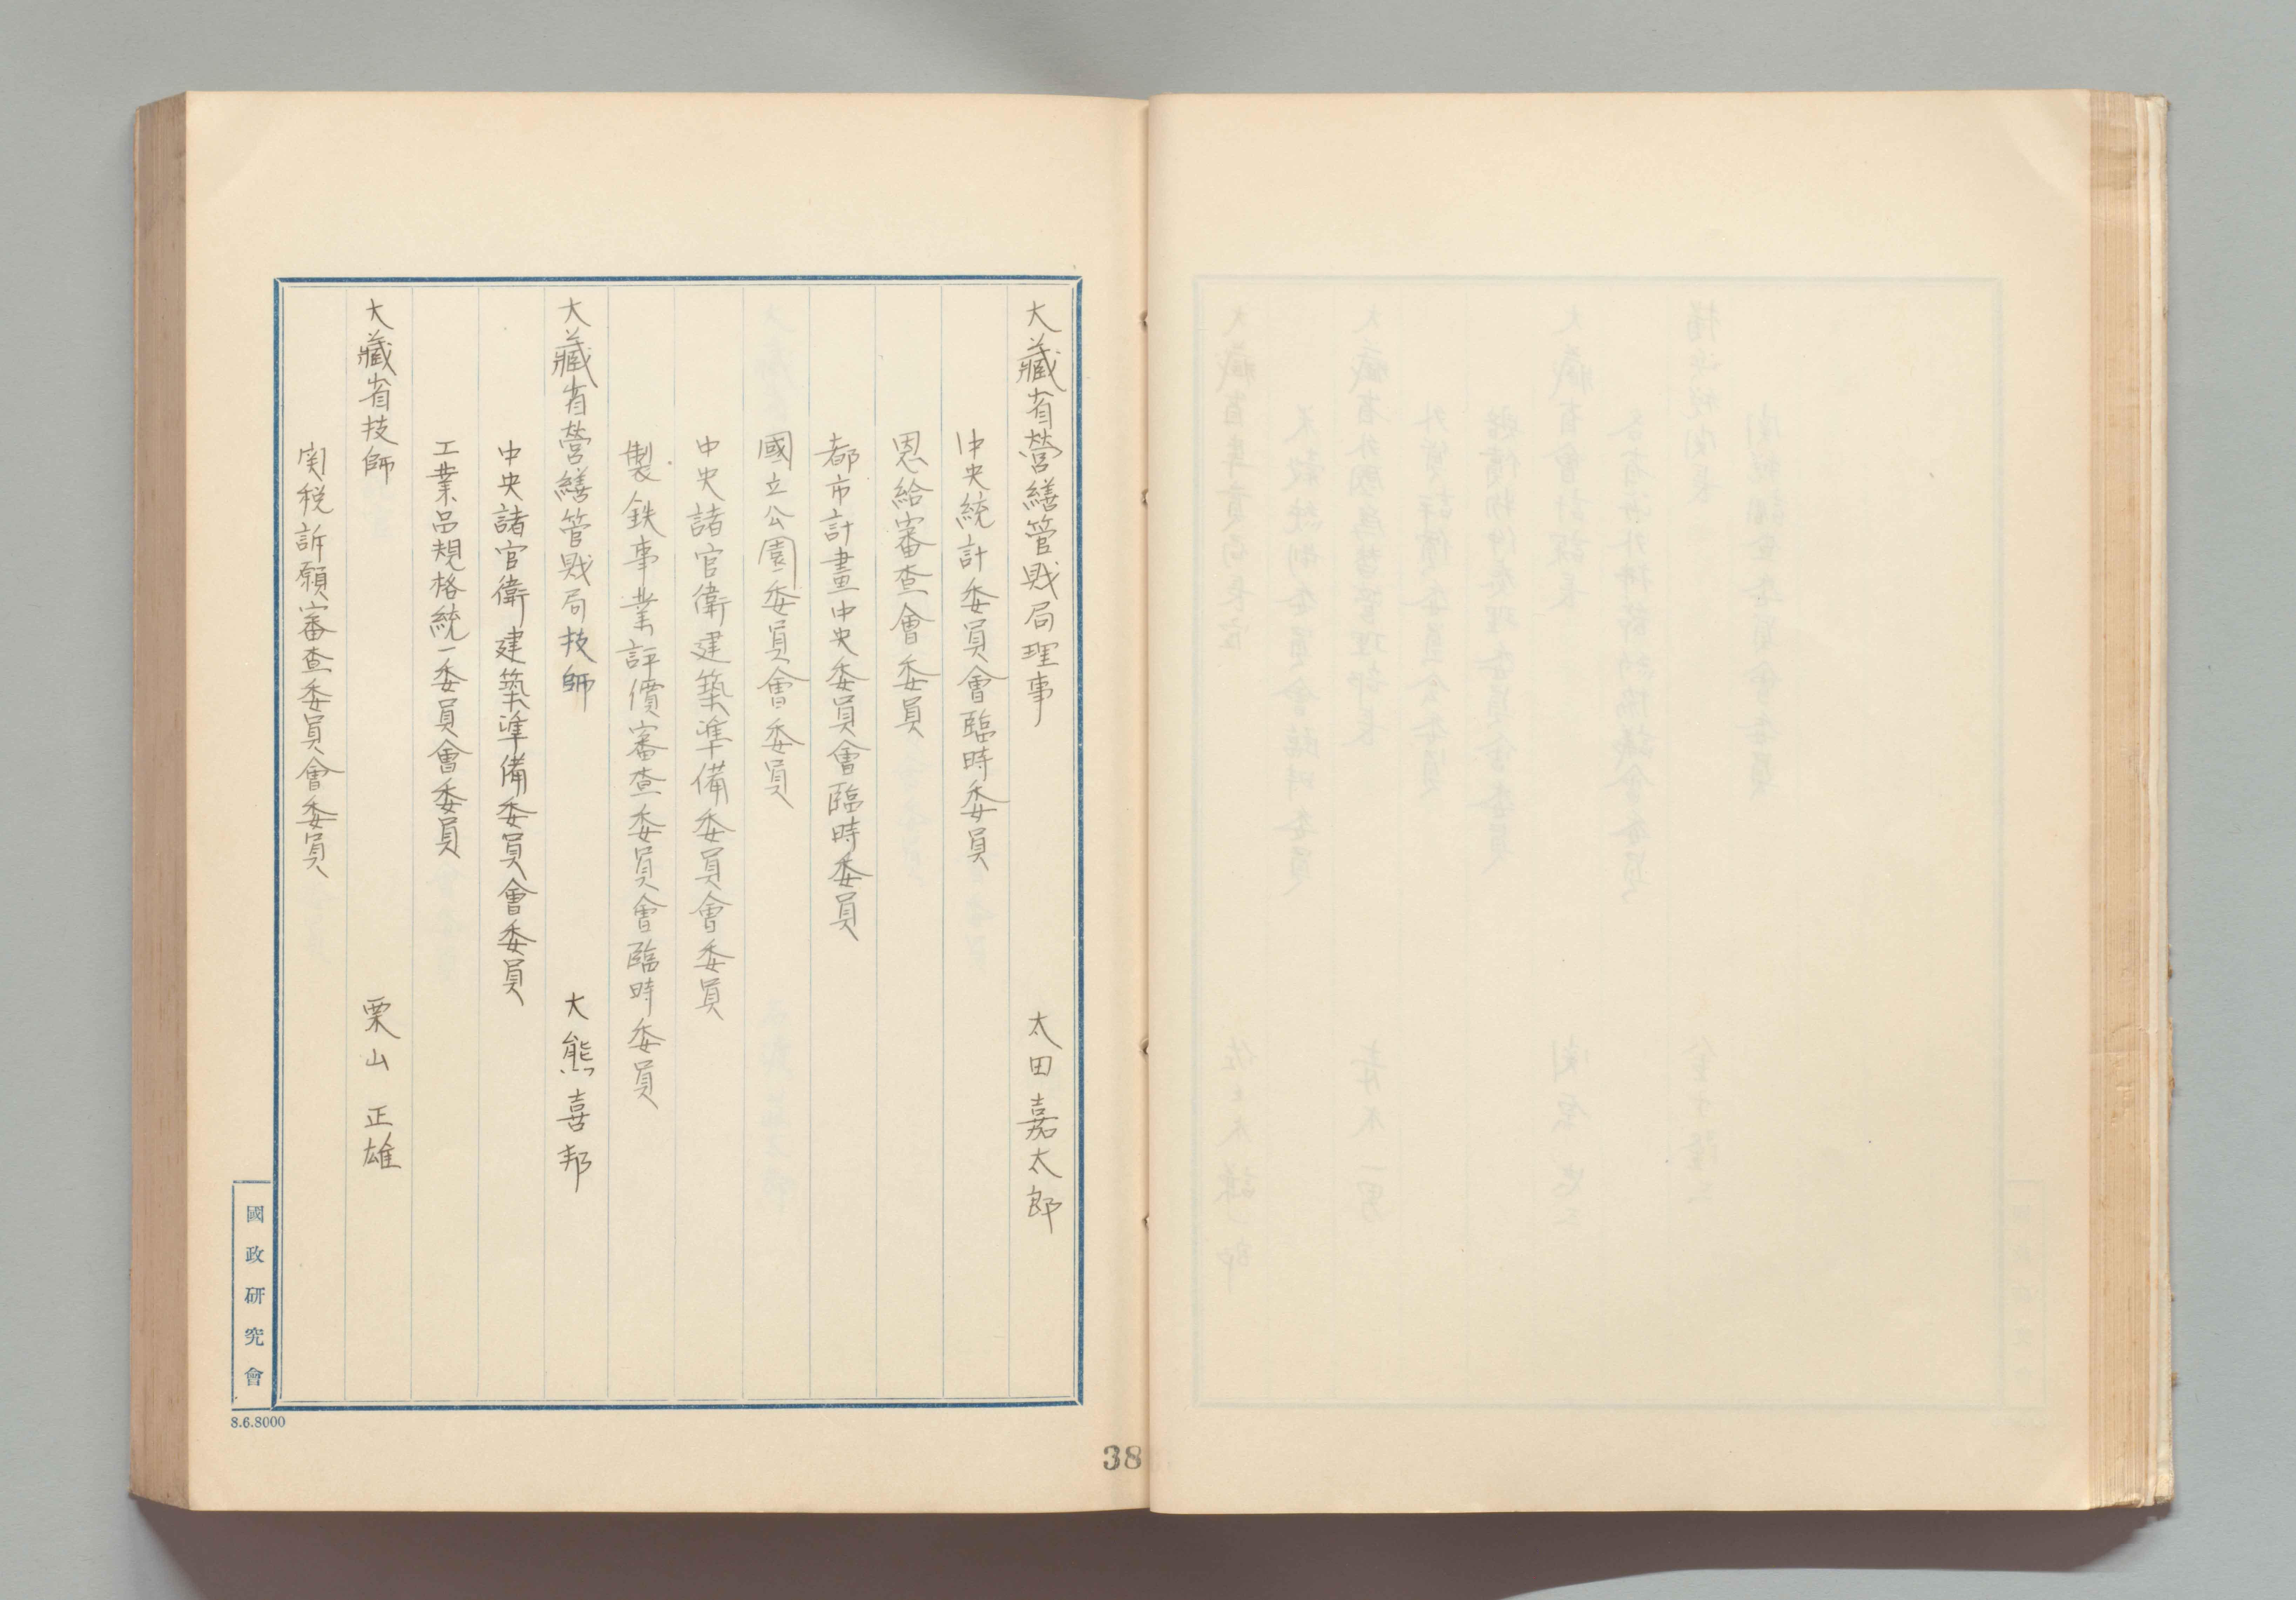 大藏省營繕管財局理事　太田嘉太郎
中央統計委員會臨時委員
恩給審査會委員
都市計畫中央委員會臨時委員
國立公園委員會委員
中央諸官衙建築準備委員會委員
製鉄事業評價審査委員會臨時委員
大藏省營繕管財局技師　大熊喜邦
中央諸官衙建築準備委員會委員
工業品規格統一委員會委員
大藏省技師　栗山正雄
関税訴願審査委員會委員
國政研究會
8.6.8000
38